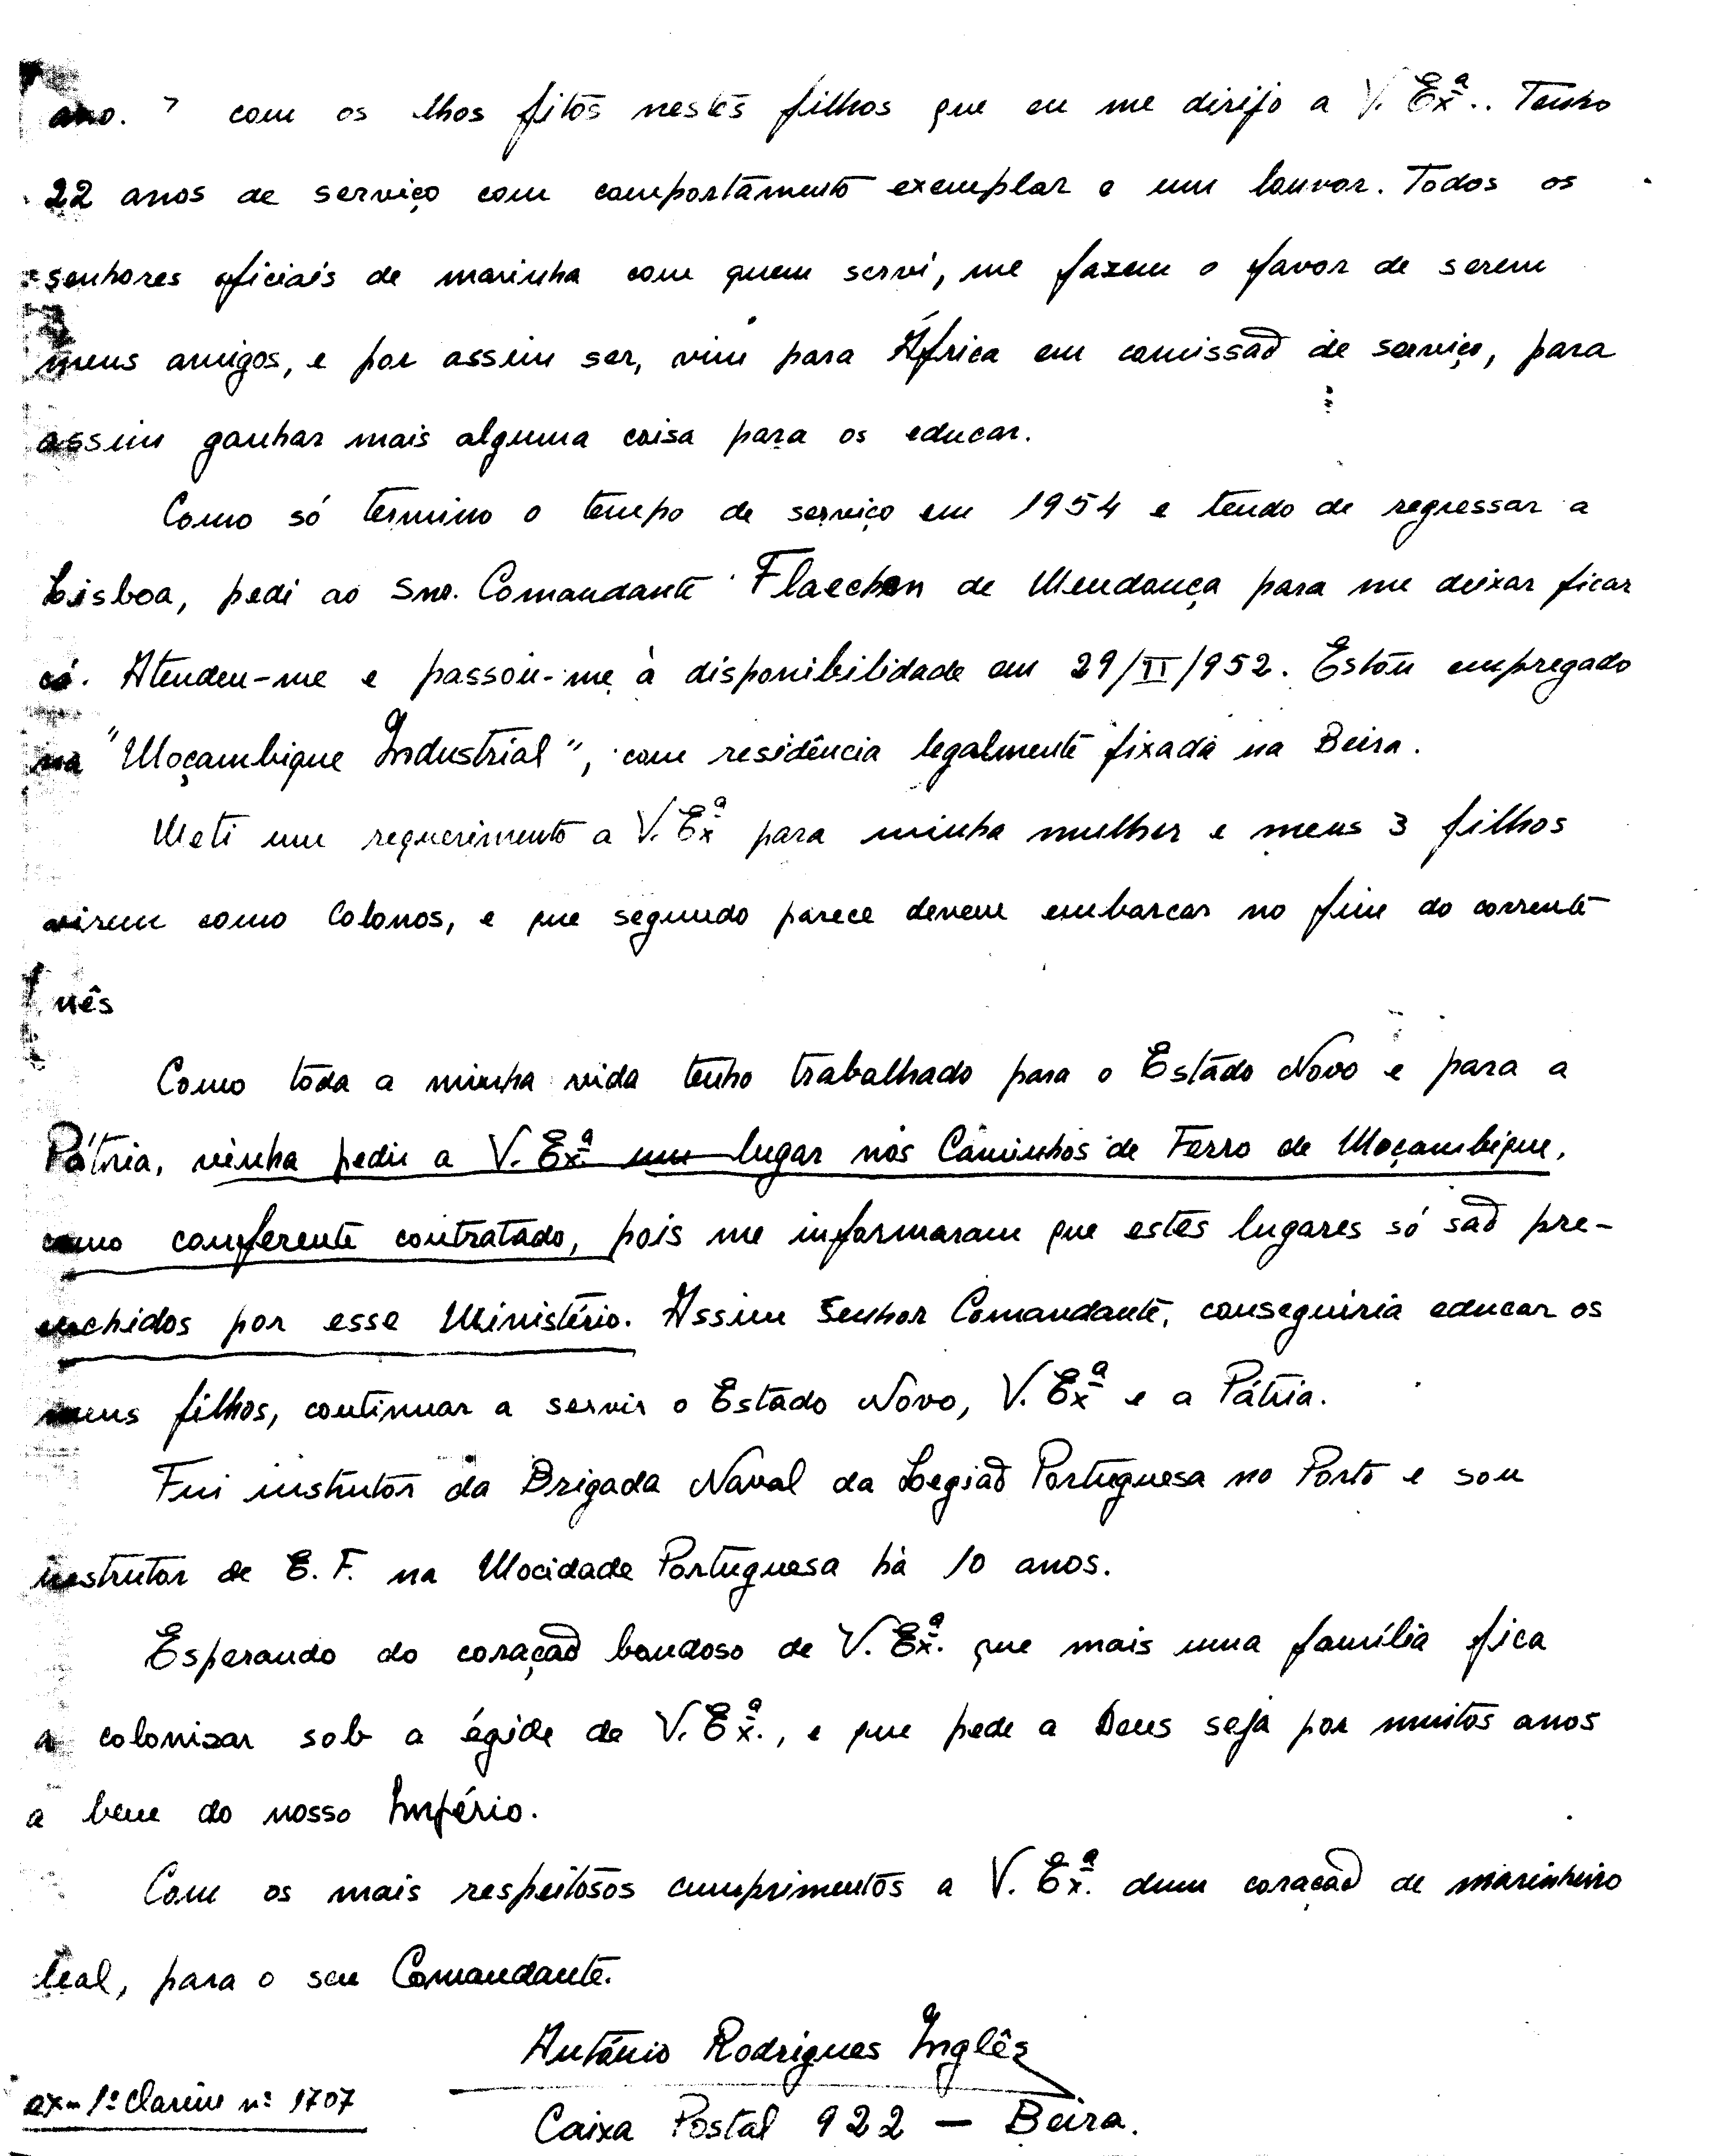 ano. É com os olhos fitos nestes filhos que eu me dirijo a V. Exª.. Tenho
22 anos de serviço com comportamento exemplar e um louvor. Todos os
senhores oficiais de marinha com quem servi, me fazem o favor de serem
meus amigos, e por assim ser, vim para África em comissão de serviço, para
assim ganhar mais alguma coisa para os educar.
Como só termino o tempo de serviço em 1954 e tendo de regressar a
Lisboa, pedi ao Snr. Comandante Flaechen de Mendonça para me deixar ficar
cá. Atendeu-me e passou-me à disponibilidade em 29/II/952. Estou empregado
na "Moçambique Industrial", com residência legalmente fixada na Beira.
Meti um requerimento a V. Exª para minha mulher e meus 3 filhos
virem como Colonos, e que segundo parece devem embarcar no fim do corrente
mês
Como toda a minha vida tenho trabalhado para o Estado Novo e para a
Pátria, vinha pedir a V. Exª. um lugar nos Caminhos de Ferro de Moçambique,
como conferente contratado, pois me informaram que estes lugares só são pre-
enchidos por esse Ministério. Assim Senhor Comandante, conseguiria educar os
meus filhos, continuar a servir o Estado Novo, V. Exª e a Pátria.
Fui instrutor da Brigada Naval da Legião Portuguesa no Porto e sou
instrutor de E. F. na Mocidade Portuguesa há 10 anos.
Esperando do coração bondoso de V. Exª. que mais uma família fica
a colonizar sob a égide de V. Exª., e que pede a Deus seja por muitos anos
a bem do nosso Império.
Com os mais respeitosos cumprimentos a V. Exª. dum coração de marinheiro
leal, para o seu Comandante.
António Rodrigues Inglês
ex-1º Clarim nº 1707
Caixa Postal 922 — Beira.